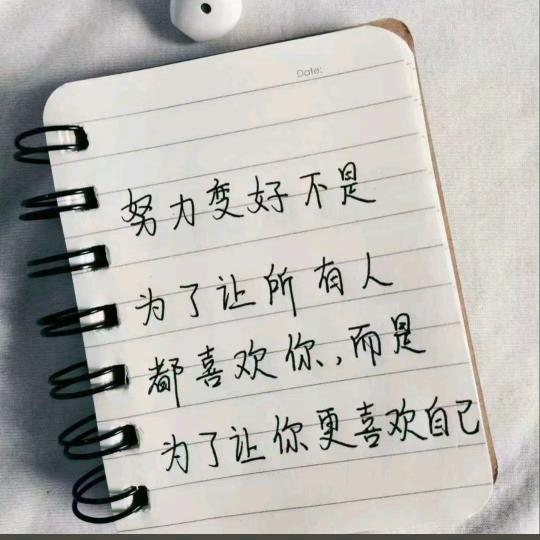 Date:
努力变好不是
为了让所有人
都喜欢你,而是
为了让你更喜欢自己